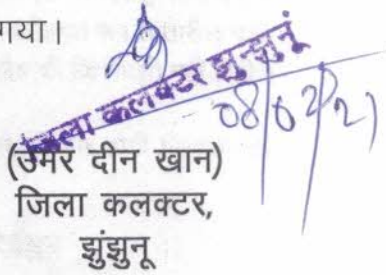 गया।
जिला कलक्टर झुन्झुनूं
08/02/21
(उमर दीन खान)
जिला कलक्टर,
झुंझुनू